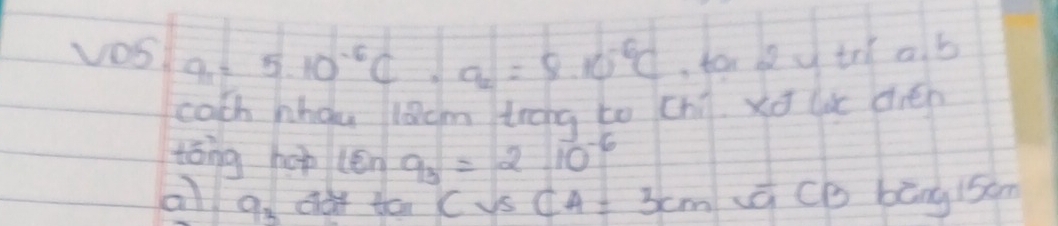 VD5 q₁ = 5.10⁻⁶C, q₂ = 8.10⁻⁶C, tại 2 vị trí a, b
cách nhau 12cm trong ko khí. xđ lực điện
tổng hợp lên q₃ = 2 10⁻⁶
a) q₃ đặt tại C vs CA = 3cm và CB bằng 15cm